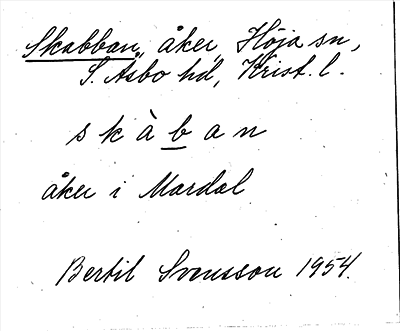 Skabban, åker, Höja sn,
S. Åsbo hd, Krist. l.
s k à b a n
åker i Mardal
Bertil Svensson 1954.